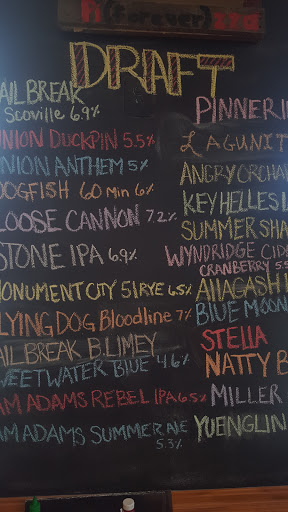 (forever)
DRAFT
AILBREAK
Scoville 6.9%
NION DUCKPIN 5.5%
NION ANTHEM 5%
OGFISH 60 Min 6%
LOOSE CANNON 7.2%
STONE IPA 6.9%
MONUMENT CITY 51 RYE 6.5%
LYING DOG Bloodline 7%
AILBREAK B.LIMEY
WEETWATER BLUE 4.6%
AM ADAMS REBEL IPA 6.5%
AM ADAMS SUMMER ALE
5.3%
PINNER I
LAGUNIT
ANGRY ORCHA
KEY HELLES
SUMMER SHA
WYNDRIDGE CID
CRANBERRY 5.5
Allagash
BLUE MOON
STELLA
NATTY B
MILLER
YUENGLIN